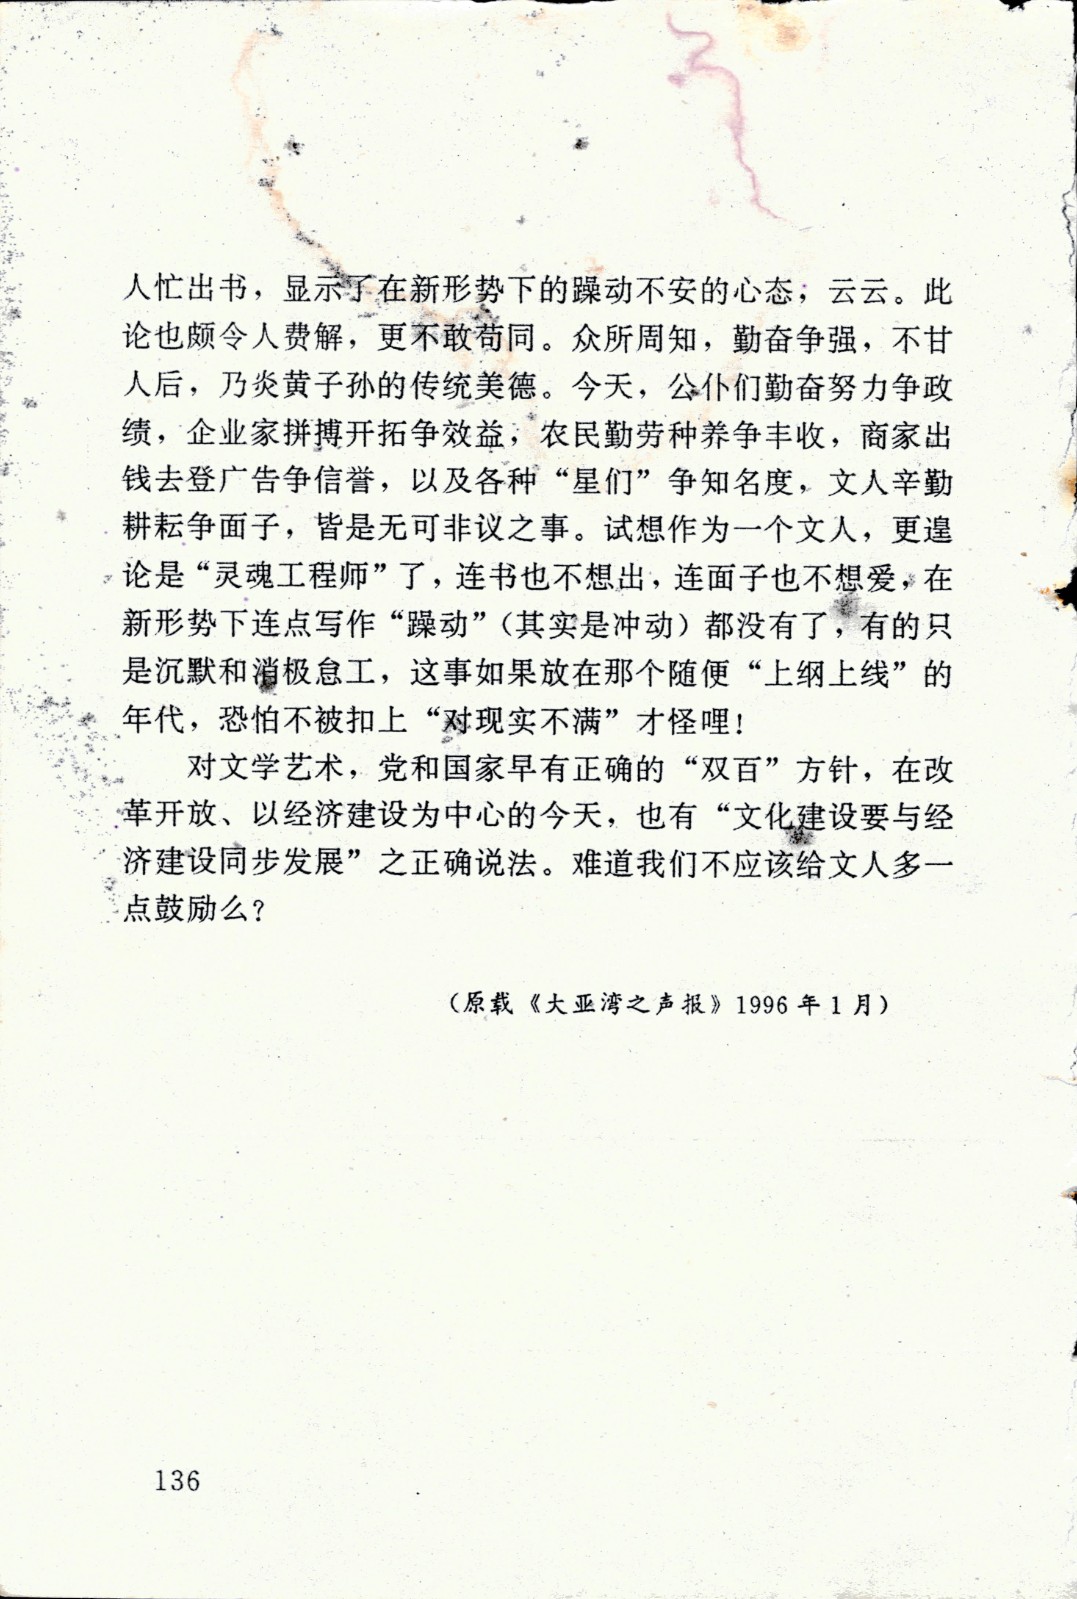 人忙出书，显示了在新形势下的躁动不安的心态，云云。此
论也颇令人费解，更不敢苟同。众所周知，勤奋争强，不甘
人后，乃炎黄子孙的传统美德。今天，公仆们勤奋努力争政
绩，企业家拼搏开拓争效益，农民勤劳种养争丰收，商家出
钱去登广告争信誉，以及各种“星们”争知名度，文人辛勤
耕耘争面子，皆是无可非议之事。试想作为一个文人，更遑
论是“灵魂工程师”了，连书也不想出，连面子也不想爱，在
新形势下连点写作“躁动”（其实是冲动）都没有了，有的只
是沉默和消极怠工，这事如果放在那个随便“上纲上线”的
年代，恐怕不被扣上“对现实不满”才怪哩！
对文学艺术，党和国家早有正确的“双百”方针，在改
革开放、以经济建设为中心的今天，也有“文化建设要与经
济建设同步发展”之正确说法。难道我们不应该给文人多一
点鼓励么？
（原载《大亚湾之声报》1996年1月）
136